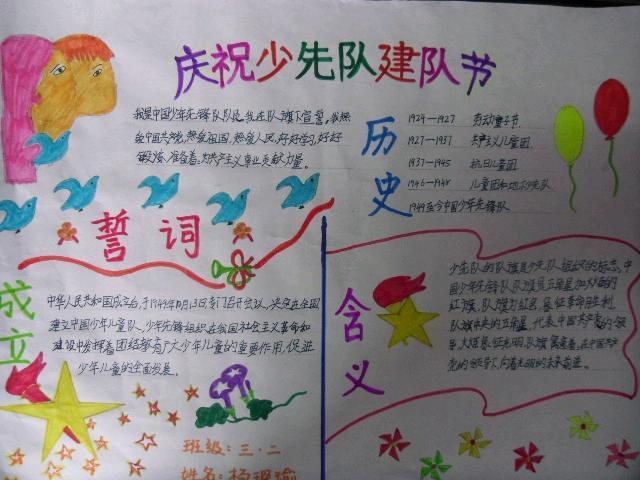 庆祝少先队建队节
我是中国少年先锋队队员,我在队旗下宣誓,我热
爱中国共产党,热爱祖国,热爱人民,好好学习,好好
锻炼,准备着:为共产主义事业贡献力量。
誓词
历史
1924-1927 劳动童子节
1927-1937 共产主义儿童团
1937-1945 抗日儿童团
1946-1948 儿童团和地下少先队
1949至今中国少年先锋队
成立
中华人民共和国成立台,于1949年10月13日专门召开会议,决定在全国
建立中国少年儿童队,少年先锋组织在我国社会主义革命和
建设中发挥着团结教育广大少年儿童的重要作用,促进
少年儿童的全面发展。
含义
少先队的队旗是少先队组织的标志,中
国少年先锋队队旗是五角星加火炬的
红旗,队旗为红色,象征革命胜利,
队旗中央的五角星,代表中国共产党的领
导,火炬象征光明,队旗寓意着,在中国共产
党的领导下,向着光明的未来前进。
班级:三·二
姓名:杨